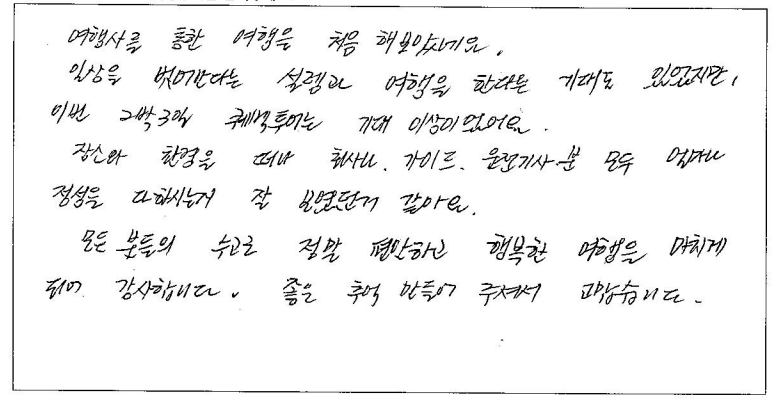 여행사를 통한 여행을 처음 해보았네요.
일상을 벗어난다는 설렘과 여행을 한다는 기대도 있었지만,
이번 2박3일 투어는 기대 이상이었어요.
장소와 환경을 떠나 회사나, 가이드, 운전기사분 모두
정성을 다하시는게 잘 보였던거 같아요.
모든 분들의 수고로 정말 편안하고 행복한 여행을 마치게
되어 감사합니다. 좋은 추억 만들어 주셔서 고맙습니다.